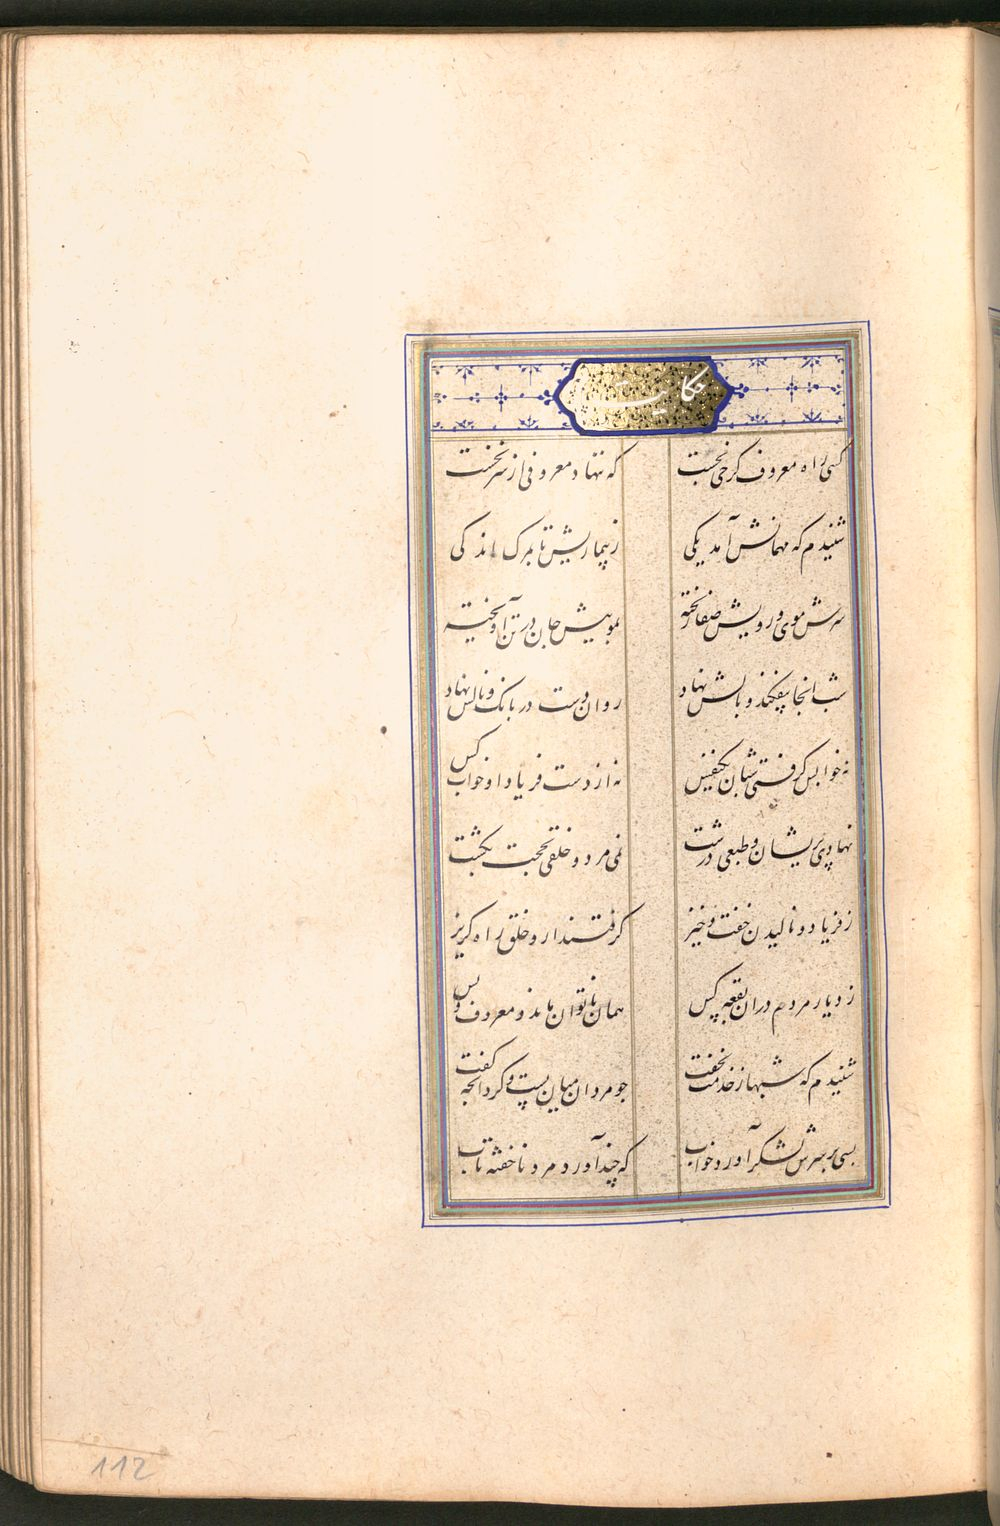 حکایت
کسی راه معروف کرخی نجست که ننهاد معروفی از سر نخست
شنیدم که مهمانش آمد یکی ز بیماریش تا بمرک اندکی
سرش موی و رویش صفا ریخته بمویش جان در تن آویخته
شب انجا بیفکند و بالش نهاد روان دست در بانک و نالش نهاد
نه خوابش کرفتی شبان یکنفس نه از دست فریاد او خواب کس
نهادی پریشان و طبعی درشت نمی مرد و خلقی بحجت بکشت
ز فریاد و نالیدن و خفت و خیز کرفتند ازو خلق راه کریز
ز دیار مردم دران بقعه کس همان ناتوان ماند و معروف و بس
شنیدم که شبها ز خدمت نخفت چو مردان میان بست و کرد انچه کفت
بسی بر سرش لشکر آورد خواب که چند آورد مرد ناخفته تاب
112